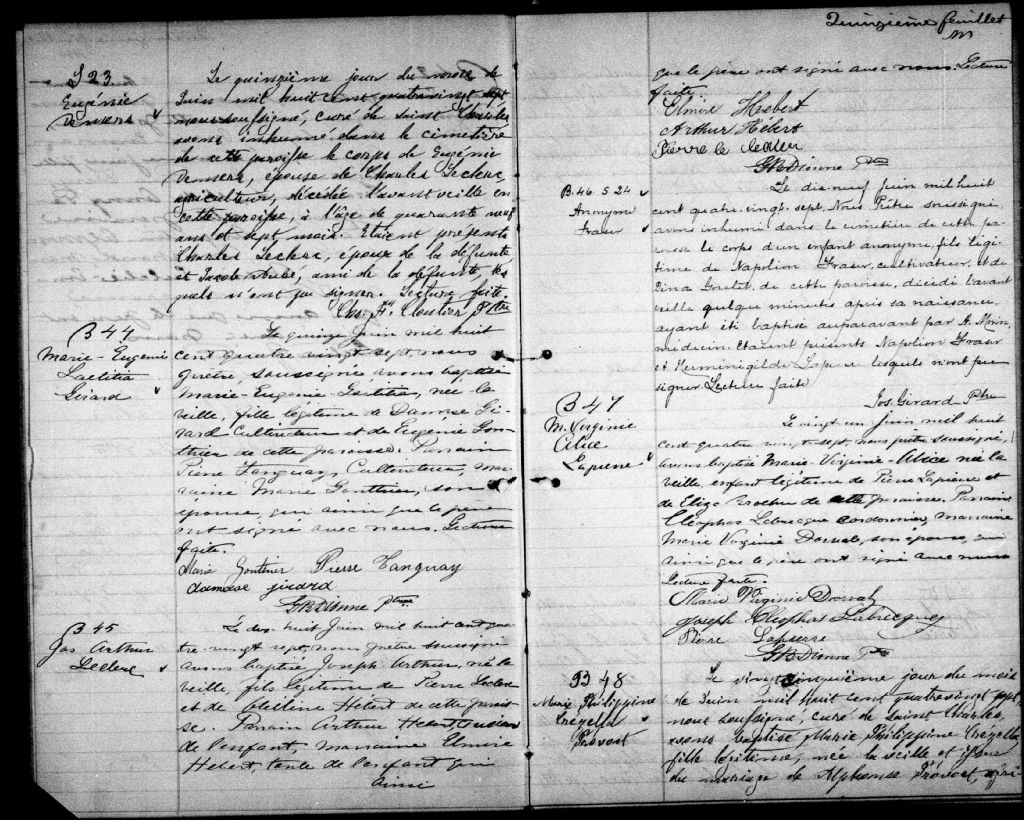 S 23
Eugénie
Demers
Le quinzième jour du mois de
Juin mil huit cent quatrevingt sept
nous soussigné, curé de Saint Charles
avons inhumé dans le cimetière
de cette paroisse le corps de Eugénie
Demers, épouse de Charles Leclerc
agriculteur, décédée l'avant veille en
cette paroisse, à l'âge de quarante neuf
ans et sept mois. Etaient présents
Charles Leclerc, époux de la défunte
et Jacob Aubé, ami de la défunte les
quels n'ont pu signer. Lecture faite.
Chs. H. Cloutier Ptre
B 44
Marie-Eugenie
Laetitia
Girard
Le quinze Juin mil huit
cent quatre vingt sept, nous
prêtre, soussigné avons baptisé
Marie-Eugenie-Laetitia, née la
veille, fille légitime de Damase Gi-
rard Cultivateur et de Eugenie Gon-
thier de cette paroisse. Parrain
Pierre Tanguay, Cultivateur, mar-
raine Marie Gonthier, son
épouse, qui ainsi que le père
ont signé avec nous. Lecture
faite.
Marie Gontier Pierre Tanguay
damase jirard
Dionne Ptre
B 45
Jos Arthur
Leclerc
Le dix huit Juin mil huit cent qua-
tre-vingt sept, nous prêtre soussigné
avons baptisé Joseph Arthur, né la
veille, fils légitime de Pierre Leclerc
et de Hebert de cette parois-
se. Parrain Arthur Hebert cousin
de l'enfant marraine Elmire
Hebert, tante de l'enfant qui
Ainsi
Quinzième feuillet
que le père ont signé avec nous. Lecture
faite.
Elmire Hebert
Arthur Hébert
Pierre le
Dionne Ptre
B. 46 S 24
Anonyme
Fraser
Le dix neuf Juin mil huit
cent quatre-vingt-sept. Nous Prêtre soussigné
avons inhumé dans le cimetière de cette pa-
roisse le corps d'un enfant anonyme, fils légi-
time de Napoléon Fraser, cultivateur, et de
de cette paroisse, décédé l'avant
veille quelque minutes après sa naissance,
ayant été baptisé auparavant par A. Morin,
médecin. Etaient présents Napoléon Fraser
et Herménégilde lesquels n'ont pu
signer Lecture faite
Jos. Girard Ptre
B 47
M. Virginie
Alice
Lapierre
Le vingt un Juin mil huit
cent quatre vingt sept, nous prêtre soussigné,
avons baptisé Marie-Virginie-Alice née la
veille, enfant légitime de Pierre Lapierre et
de Eliza Brochu de cette paroisse. Parrain
Cléophas Labrecque cordonnier, marraine
Marie Virginie Dorval, son épouse, qui
ainsi que le père ont signé avec nous
Lecture faite.
Marie Virginie Dorval
Joseph Cléophas Labrecque
Pierre Lapierre
Dionne Ptre
B 48
Marie Philippine
Prévost
Le vingt cinquième jour du mois
de Juin mil huit cent quatrevingt sept,
nous soussigné, curé de Saint Charles,
avons baptisé Marie Philippine
fille légitime, née la veille et issue
du mariage de Alphonse Prévost, agri